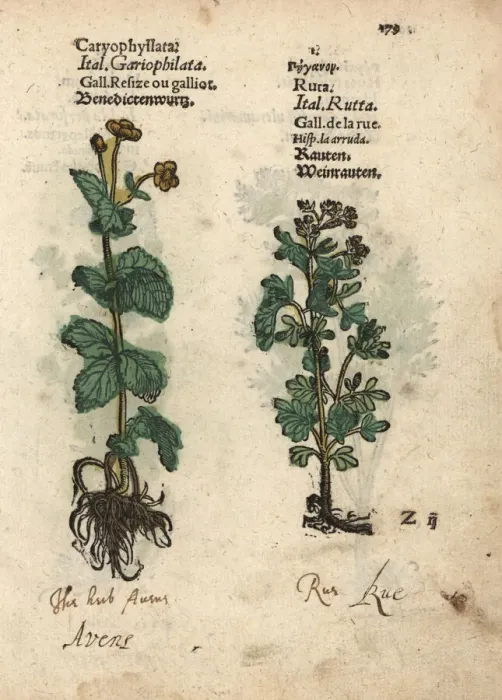 179
Caryophyllata.
Ital. Gariophilata.
Gall. Resize ou galliot.
Benedictenwurtz.
1.
Πήγανον.
Ruta.
Ital. Rutta.
Gall. de la rue.
Hisp. la arruda.
Rauten.
Weinrauten.
Z ij
The herb Avens
Avens
Rue Rue